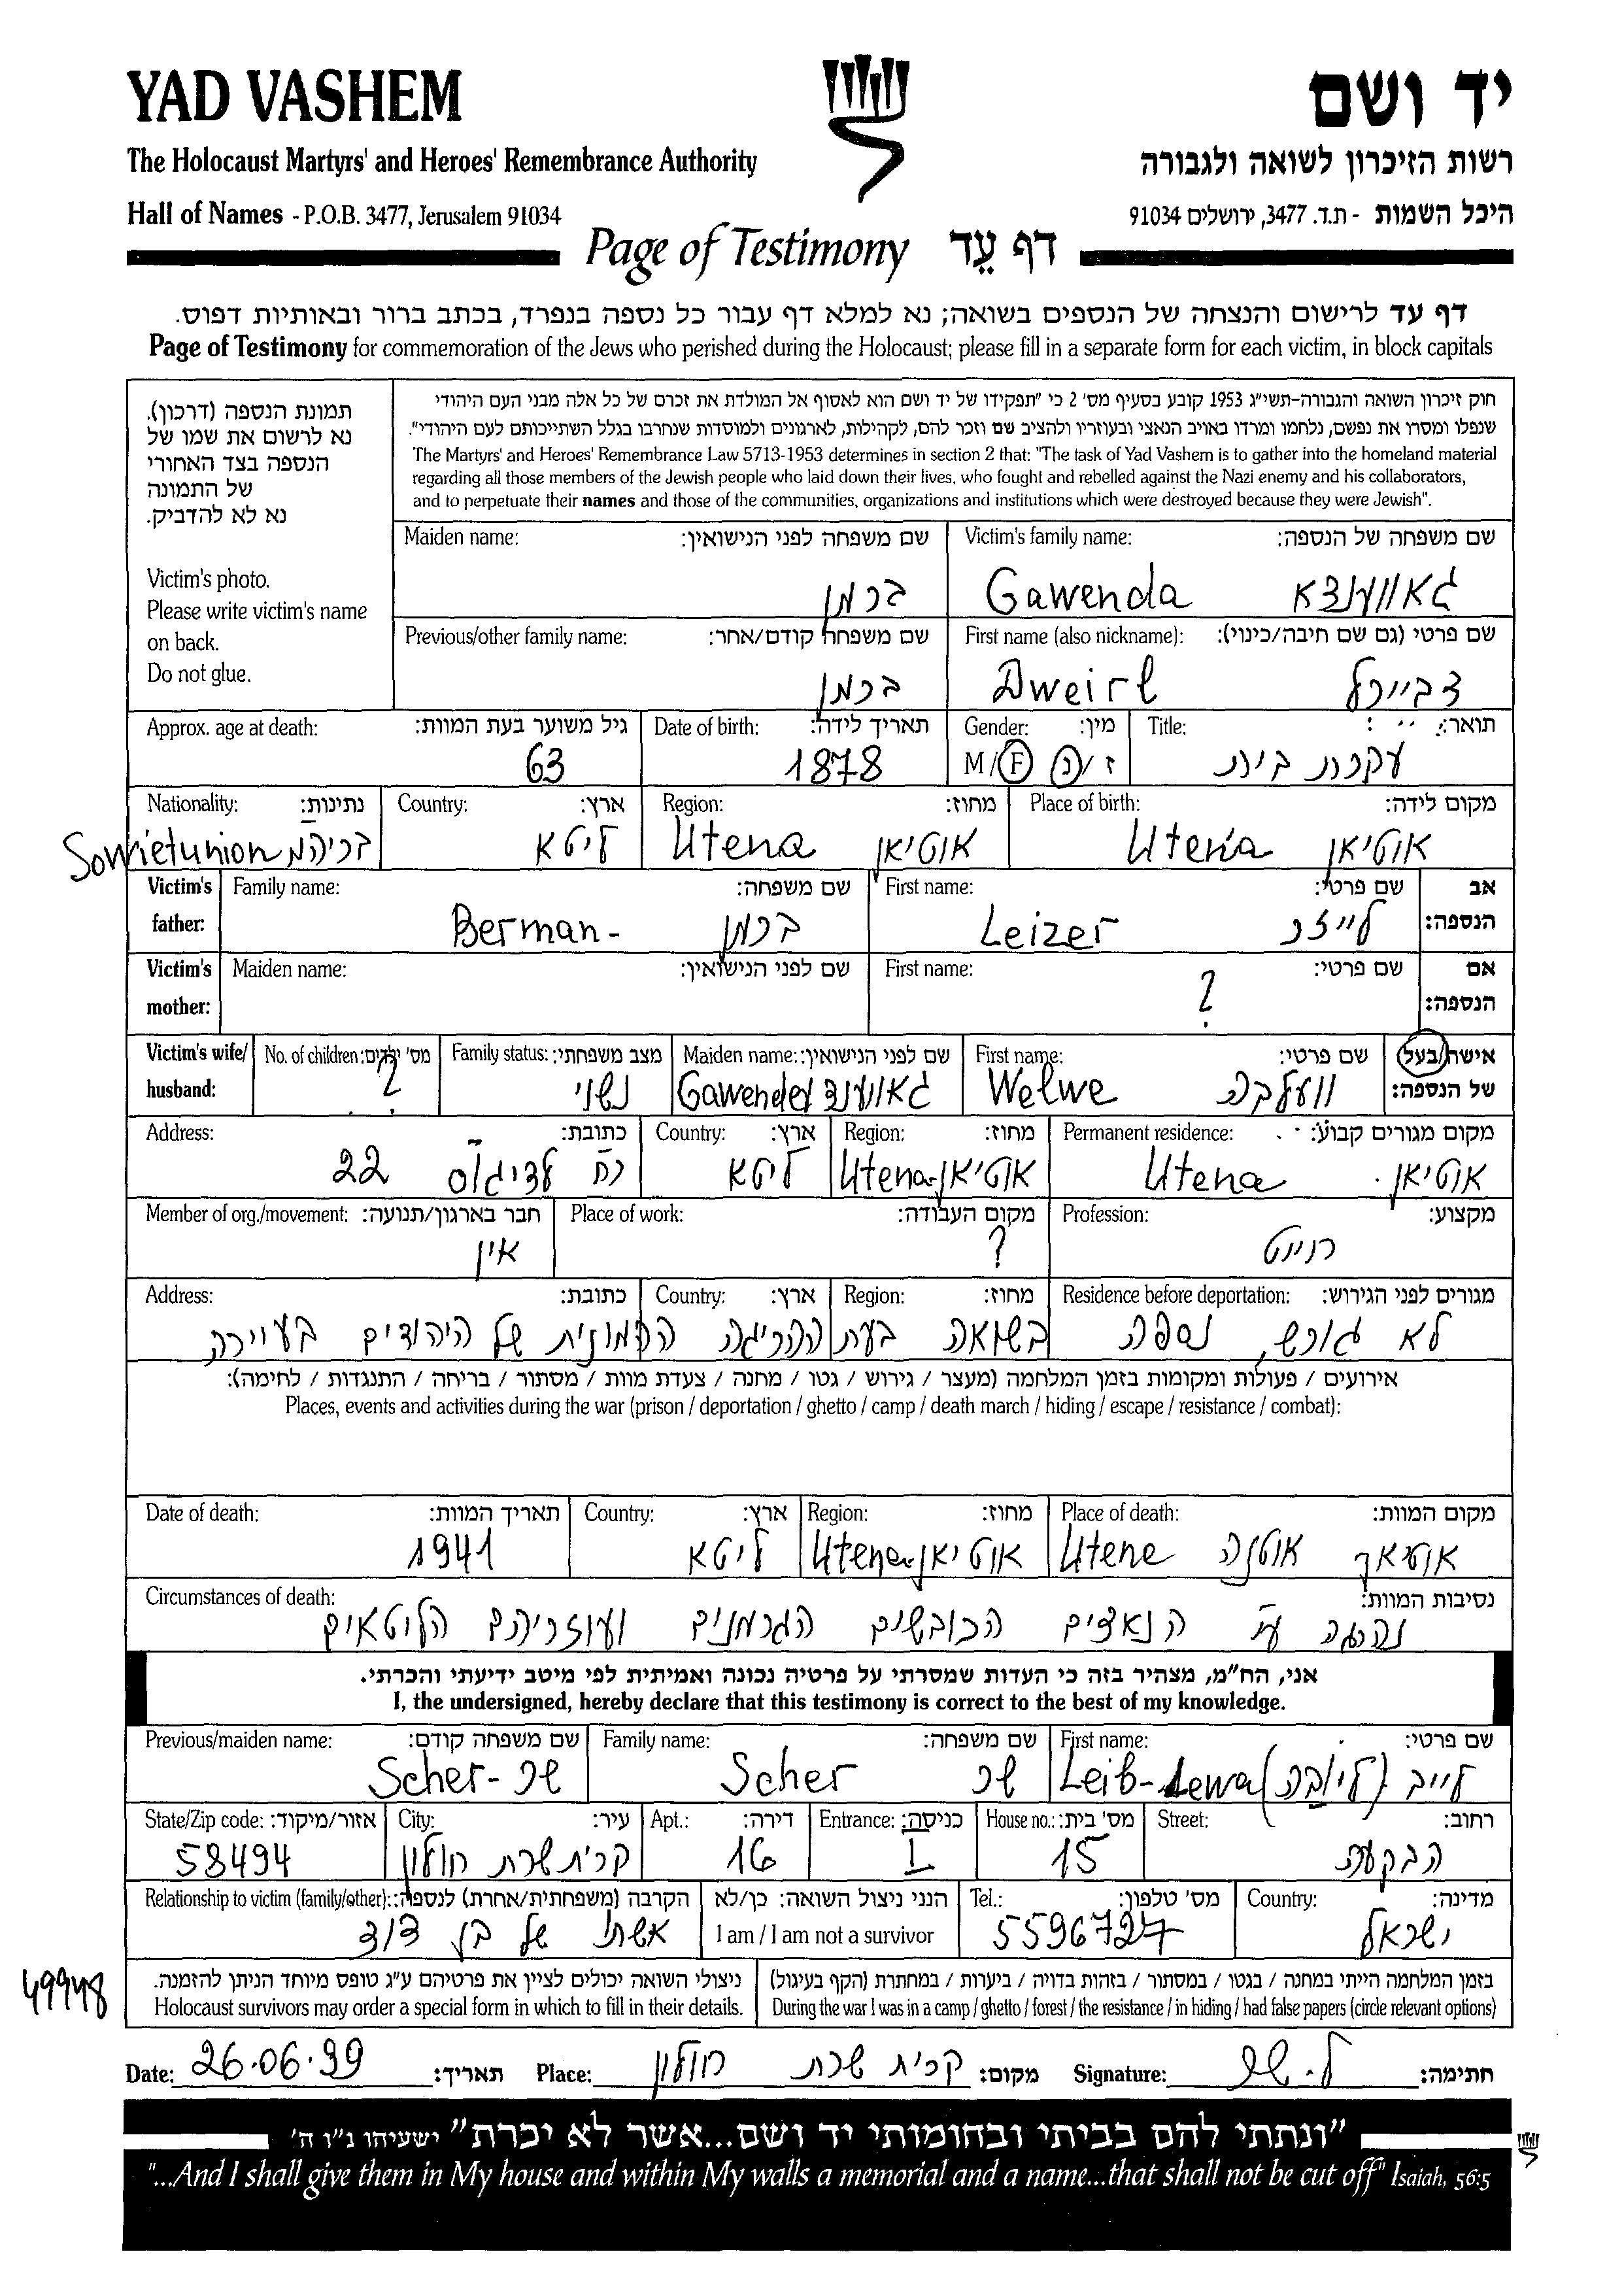 YAD VASHEM יד ושם
The Holocaust Martyrs' and Heroes' Remembrance Authority רשות הזיכרון לשואה ולגבורה
Hall of Names - P.O.B. 3477, Jerusalem 91034 היכל השמות - ת.ד. 3477, ירושלים 91034
Page of Testimony דף עֵד
דף עד לרישום והנצחה של הנספים בשואה; נא למלא דף עבור כל נספה בנפרד, בכתב ברור ובאותיות דפוס.
Page of Testimony for commemoration of the Jews who perished during the Holocaust; please fill in a separate form for each victim, in block capitals
תמונת הנספה (דרכון).
נא לרשום את שמו של
הנספה בצד האחורי
של התמונה
נא לא להדביק.
Victim's photo.
Please write victim's name
on back.
Do not glue.
חוק זיכרון השואה והגבורה-תשי"ג 1953 קובע בסעיף מס' 2 כי "תפקידו של יד ושם הוא לאסוף אל המולדת את זכרם של כל אלה מבני העם היהודי
שנפלו ומסרו את נפשם, נלחמו ומרדו באויב הנאצי ובעוזריו ולהציב שם וזכר להם, לקהילות, לארגונים ולמוסדות שנחרבו בגלל השתייכותם לעם היהודי".
The Martyrs' and Heroes' Remembrance Law 5713-1953 determines in section 2 that: "The task of Yad Vashem is to gather into the homeland material
regarding all those members of the Jewish people who laid down their lives, who fought and rebelled against the Nazi enemy and his collaborators,
and to perpetuate their names and those of the communities, organizations and institutions which were destroyed because they were Jewish".
Maiden name: שם משפחה לפני הנישואין: Victim's family name: שם משפחה של הנספה:
ברמן Gawenda גאווענדא
Previous/other family name: שם משפחה קודם/אחר: First name (also nickname): שם פרטי (גם שם חיבה/כינוי):
ברמן Dweirl דביירל
Approx. age at death: גיל משוער בעת המוות: Date of birth: תאריך לידה: Gender: מין: Title: תואר:
63 1878 M/F ז/נ עקרת בית
Nationality: נתינות: Country: ארץ: Region: מחוז: Place of birth: מקום לידה:
Sowietunion בריהמ ליטא Utena אוטיאן Utena אוטיאן
Victim's father: Family name: שם משפחה: First name: שם פרטי: אב הנספה:
Berman- ברמן Leizer לייזר
Victim's mother: Maiden name: שם לפני הנישואין: First name: שם פרטי: אם הנספה:
?
Victim's wife/ husband: No. of children: מס' ילדים: Family status: מצב משפחתי: Maiden name: שם לפני הנישואין: First name: שם פרטי: אישה/בעל של הנספה:
? נשוי Gawenda גאווענד Welwe וועלבה
Address: כתובת: Country: ארץ: Region: מחוז: Permanent residence: מקום מגורים קבוע:
22 רח ליטא Utena-אוטיאן Utena אוטיאן.
Member of org./movement: חבר בארגון/תנועה: Place of work: מקום העבודה: Profession: מקצוע:
אין ? חייט
Address: כתובת: Country: ארץ: Region: מחוז: Residence before deportation: מגורים לפני הגירוש:
לא גורש, נספה בשואה בעת ההריגה ההמונית של היהודים בעיירה
אירועים / פעולות ומקומות בזמן המלחמה (מעצר / גירוש / גטו / מחנה / צעדת מוות / מסתור / בריחה / התנגדות / לחימה):
Places, events and activities during the war (prison / deportation / ghetto / camp / death march / hiding / escape / resistance / combat):
Date of death: תאריך המוות: Country: ארץ: Region: מחוז: Place of death: מקום המוות:
1941 ליטא Utena-אוטיאן Utene אוטנה אוטיאן
Circumstances of death: נסיבות המוות:
נהרגה ע"י הנאצים הכובשים הגרמנים ועוזריהם הליטאים
אני, הח"מ, מצהיר בזה כי העדות שמסרתי על פרטיה נכונה ואמיתית לפי מיטב ידיעתי והכרתי.
I, the undersigned, hereby declare that this testimony is correct to the best of my knowledge.
Previous/maiden name: שם משפחה קודם: Family name: שם משפחה: First name: שם פרטי:
Scher- שר Scher שר Leib-Lewa (ליובה) לייב
State/Zip code: אזור/מיקוד: City: עיר: Apt.: דירה: Entrance: כניסה: House no.: מס' בית: Street: רחוב:
58494 קרית שרת חולון 16 1 15 הבקעה
Relationship to victim (family/other): הקרבה (משפחתית/אחרת) לנספה: הנני ניצול השואה: כן/לא I am / I am not a survivor Tel.: מס' טלפון: Country: מדינה:
אשתו של בן דוד 5596727 ישראל
49948
ניצולי השואה יכולים לציין את פרטיהם ע"ג טופס מיוחד הניתן להזמנה. בזמן המלחמה הייתי במחנה / בגטו / במסתור / בזהות בדויה / ביערות / במחתרת (הקף בעיגול)
Holocaust survivors may order a special form in which to fill in their details. During the war I was in a camp / ghetto / forest / the resistance / in hiding / had false papers (circle relevant options)
Date: 26.06.99 תאריך: Place: קרית שרת חולון מקום: Signature: ל. שר חתימה:
"ונתתי להם בביתי ובחומותי יד ושם...אשר לא יכרת" ישעיהו נ"ו ה'
"...And I shall give them in My house and within My walls a memorial and a name...that shall not be cut off" Isaiah, 56:5